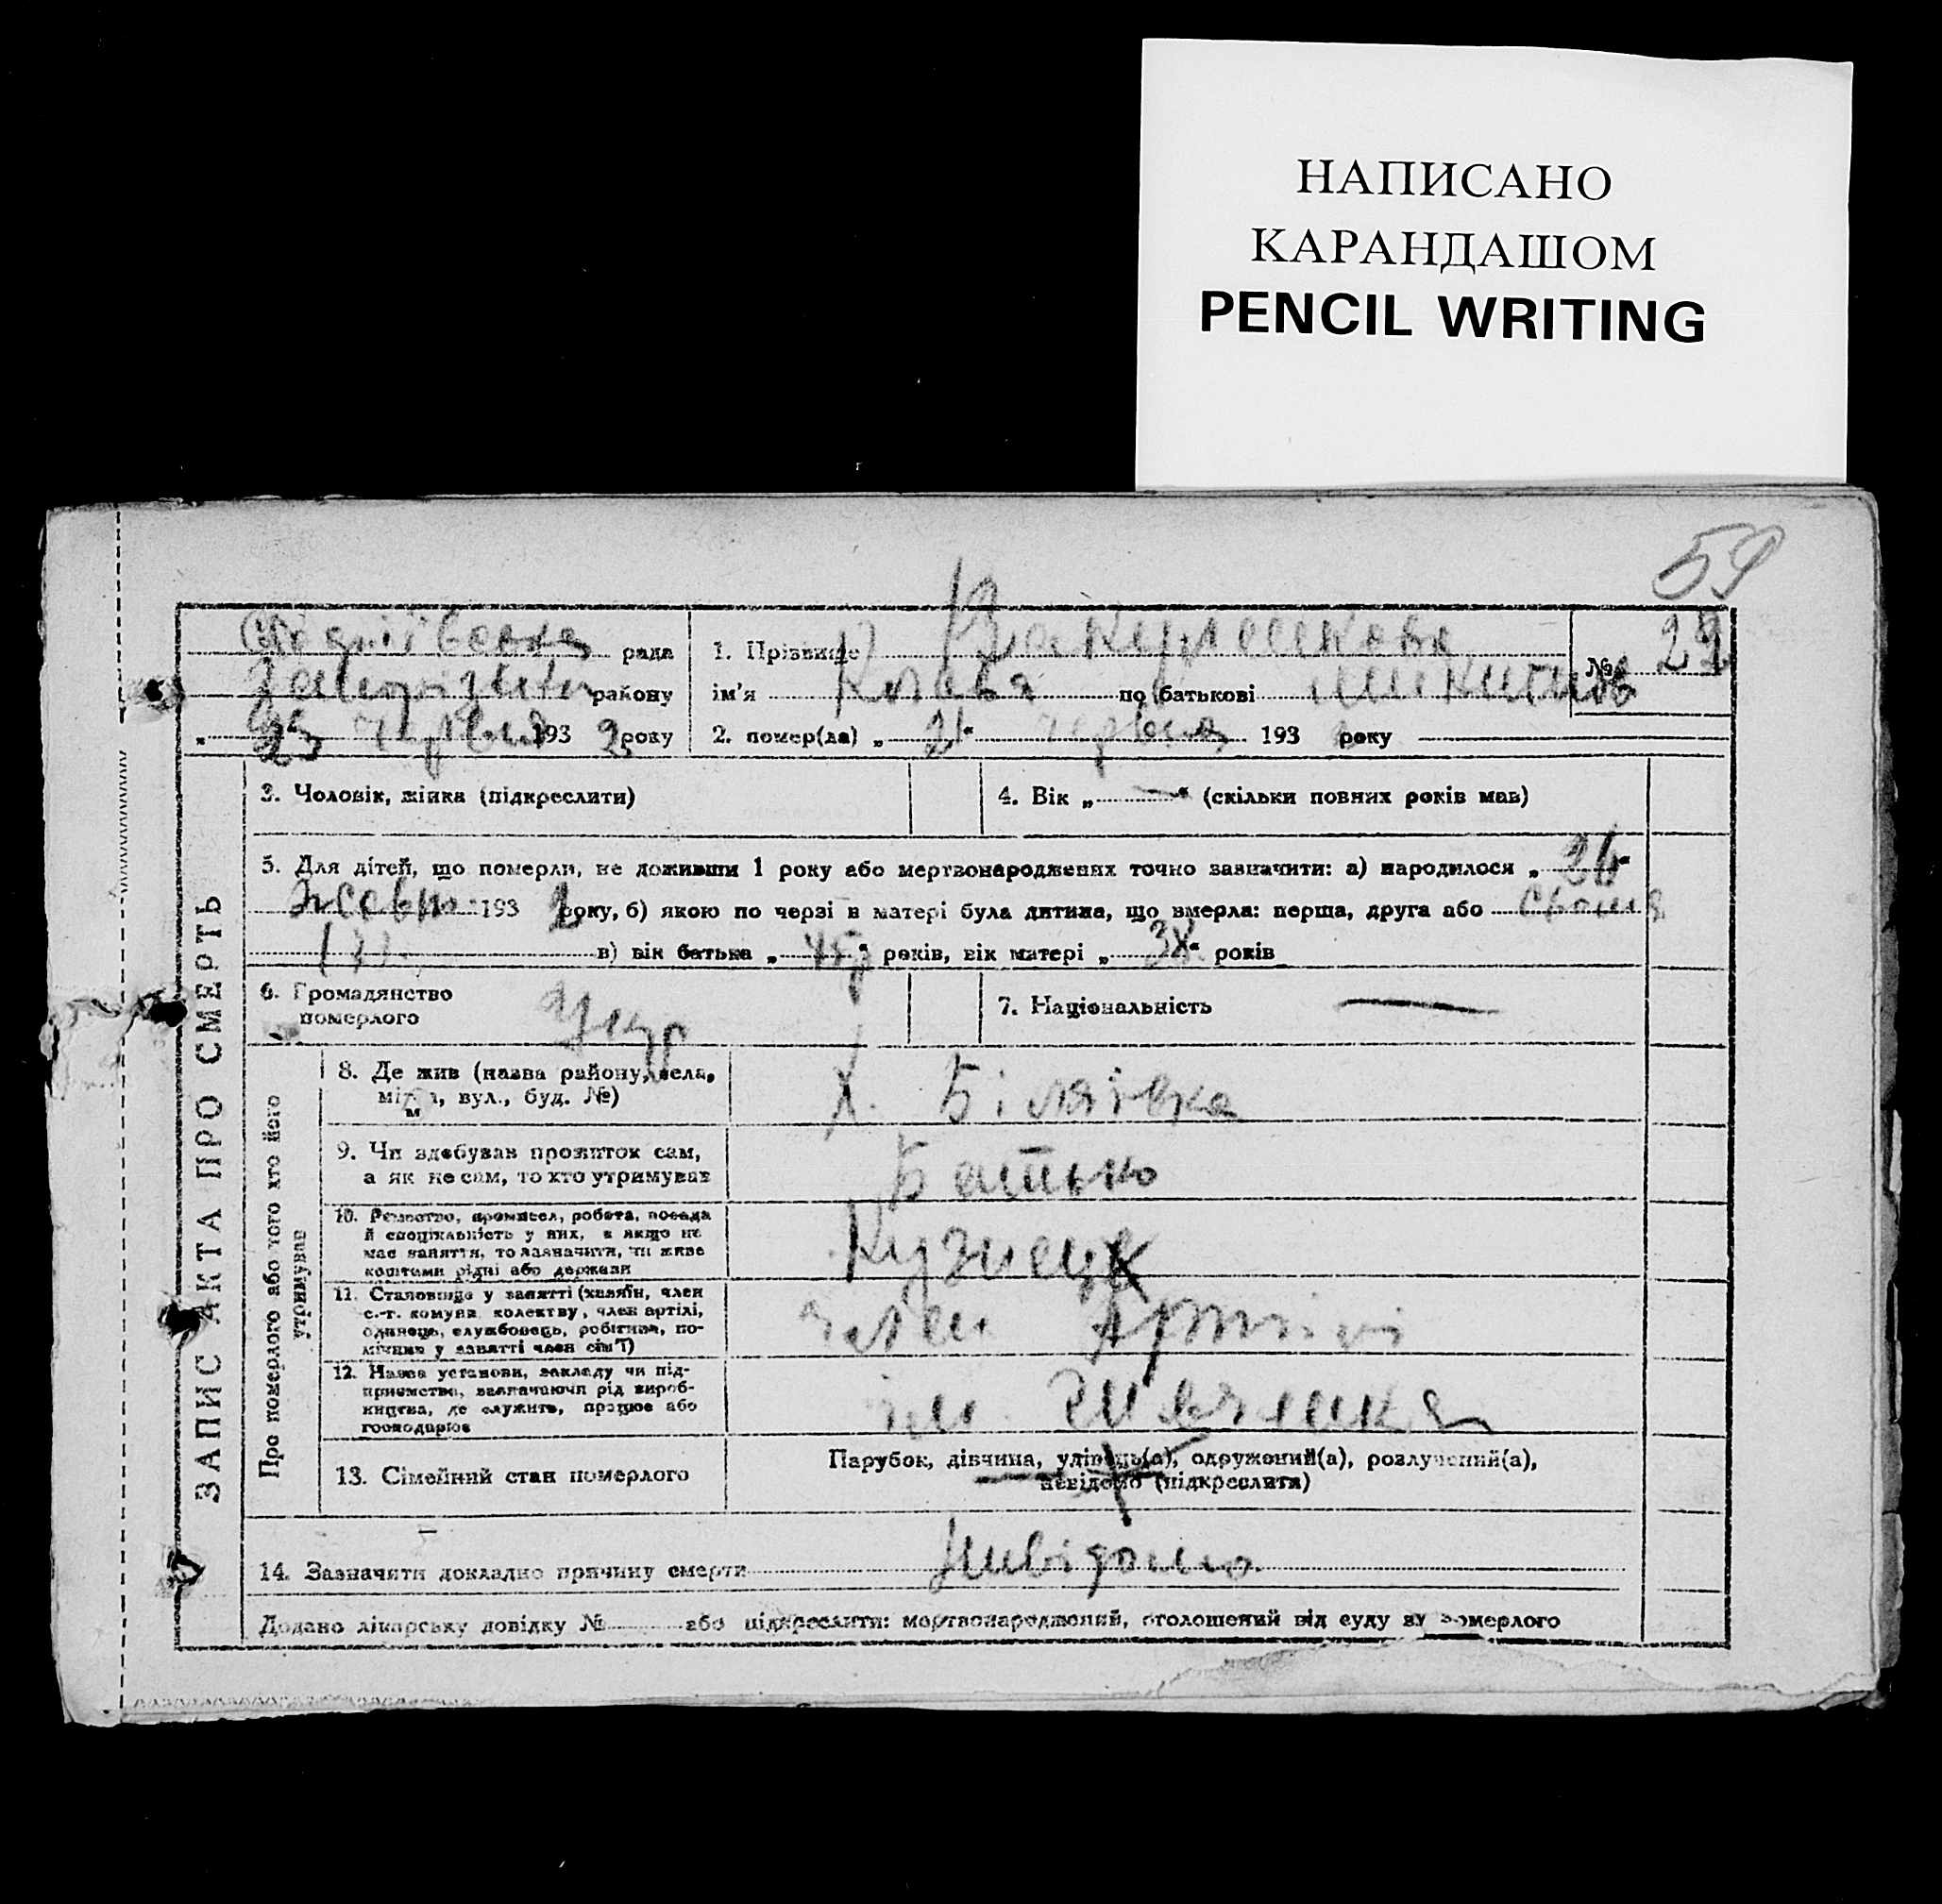 НАПИСАНО
КАРАНДАШОМ
PENCIL WRITING
59
рада
района
№ 29
1. Прізвище
ім'я по батькові
„ 23 червня 193 2 року
2. помер(ла) „ 21 " червня 193 2 року
ЗАПИС АКТА ПРО СМЕРТЬ
3. Чоловік, жінка (підкреслити)
4. Вік „ — " (скільки повних років мав)
5. Для дітей, що померли, не доживши 1 року або мертвонароджених точно зазначити: а) народилося „ 26 "
193 року, б) якою по черзі в матері була дитина, що вмерла: перша, друга або
в) вік батька „ 45 " років, вік матері „ 38 " років
6. Громадянство
померлого
7. Національність —
Про померлого або того хто його
утримував
8. Де жив (назва району, села,
міста, вул., буд. №)
Х. Біляївка
9. Чи здобував прожиток сам,
а як не сам, то хто утримував
Батько
10. Ремество, промисел, робота, посада
й спеціяльність у них, а якщо не
має заняття, то зазначити, чи живе
коштами рідні або держави
Кузнець
11. Становище у занятті (хазяїн, член
с.-г. комуни, колективу, член артілі,
одинець, службовець, робітник, по-
мічник у занятті член сім'ї)
член Артілі
12. Назва установи, закладу чи під-
приємства, зазначаючи рід вироб-
ництва, де служить, працює або
господарює
ім. Шевченка
13. Сімейний стан померлого
Парубок, дівчина, удівець(а), одружений(а), розлучений(а),
невідомо (підкреслити)
14. Зазначити докладно причину смерти
Додано лікарську довідку № або підкреслити: мертвонароджений, оголошений від суду за померлого